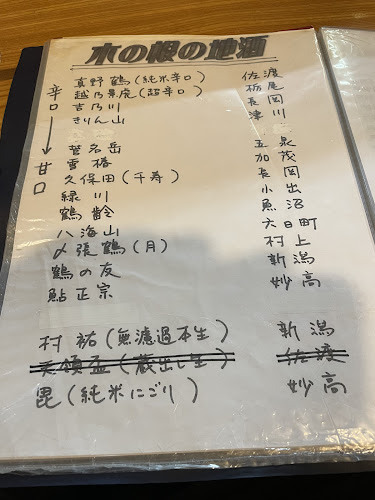 木の根の地酒
辛口→甘口
真野鶴(純米辛口) 佐渡
越乃景虎(超辛口) 栃尾
吉乃川 長岡
きりん山 津川
菅名岳 五泉
雪椿 加茂
久保田(千寿) 長岡
緑川 小出
鶴齢 魚沼
八海山 六日町
〆張鶴(月) 村上
鶴の友 新潟
鮎正宗 妙高
村祐(無濾過本生) 新潟
天領盃(蔵出し生) 佐渡
毘(純米にごり) 妙高